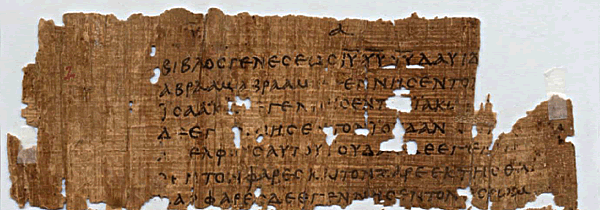 α
ΒΙΒΛΟϹΓΕΝΕϹΕΩϹΙΥΧΥΥΥΔΑΥΙΔ
ΑΒΡΑΑΜ ΑΒΡΑΑΜ ΕΝΝΗϹΕΝΤΟ
ΙϹΑΑΚ ΕΓΕΝΝΗϹΕΝΤ ΙΑΚΩ
Δ ΕΓ ΝΝΗϹΕΝΤΟΝΙΟΥΔΑΝ
ΕΛΦΟ ϹΑΥΤΟΥΙΟΥΔΑ ΔΕΕΓΕΝΝΗ
ΕΝΤΟΝΦΑΡΕϹΚΑΙΤΟΝΖΑΡΕΕΚΤΗϹΘΑ
ΑΡΦΑΡΕϹΔΕΕΓΕΝΝΗϹΕΝΤΟΝΕϹΡΩΜ